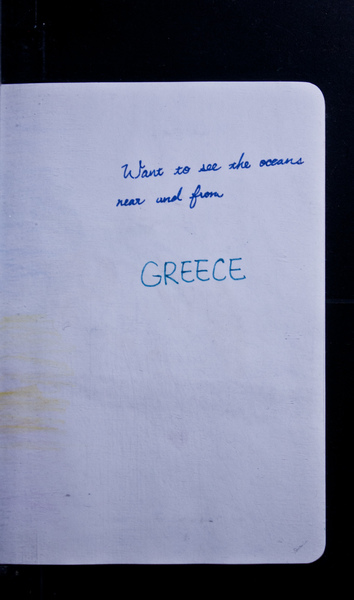 Want to see the oceans
near and from
GREECE